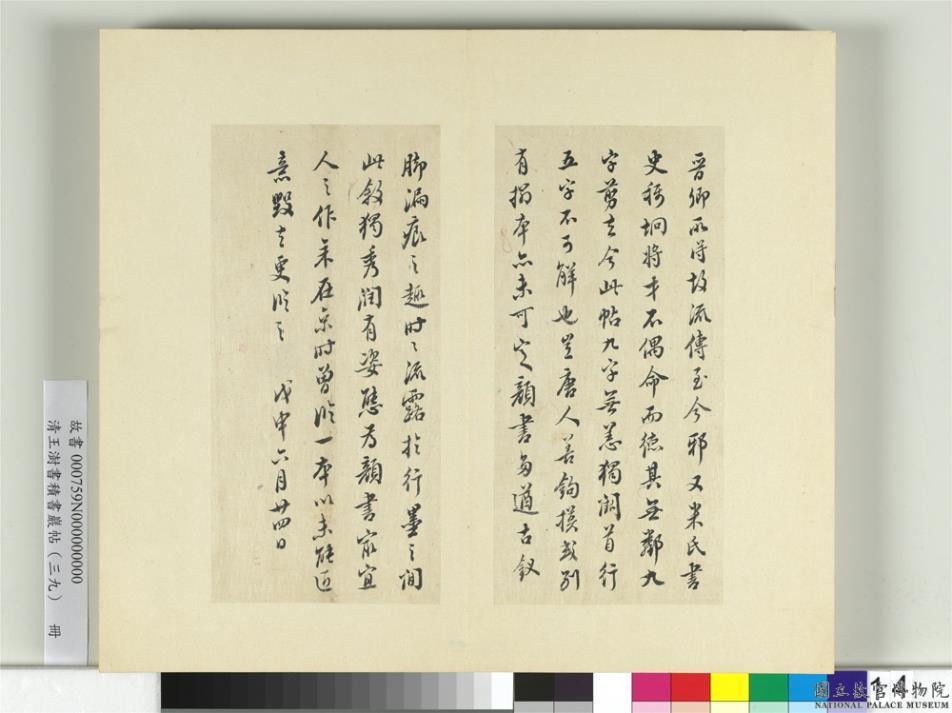 晉卿所得故流傳至今邪又米氏書
史稱坰將才不偶命而德其無鄰九
字剪去今此帖九字無恙獨闕首行
五字不可解也豈唐人善鉤摸或別
有搨本亦未可定顏書多遒古釵
脚漏痕之趣时〻流露於行墨之間
此敘獨秀潤有姿態為顏書最宜
人之作在京时曾临一本以未能近
意毀去更临之 戊申六月廿四日
故書 000759N000000000
清王澍書積書巖帖（三九） 冊
14
國立故宮博物院
NATIONAL PALACE MUSEUM